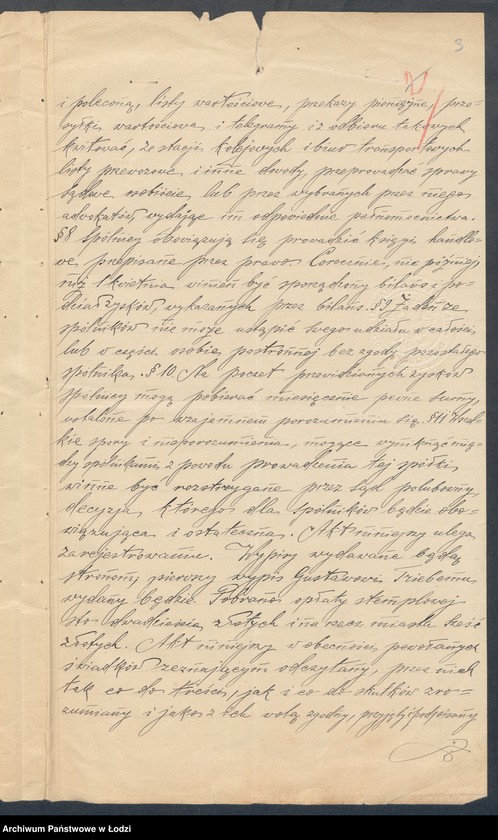 3
i poleconą, listy wartościowe, przekazy pieniężne, prze-
syłki wartościowe i telegramy i z odbioru takowych
kwitować, ze stacji kolejowych i biur transportowych
listy przewozowe, i inne dowody, przeprowadzać sprawy
sądowe osobiście, lub przez wybranych przez niego
adwokatów, wydając im odpowiednie pełnomocnictwa.
§8 Spólnicy obowiązują się prowadzić księgi handlo-
we, przepisane przez prawo. Corocznie, nie później
niż 1 kwietnia winien być sporządzony bilans i po-
dział zysków, wykazanych przez bilans. §9 Żaden ze
spólników nie może ustąpić swego udziału w całości
lub w części osobie postronnej bez zgody pozostałego
spólnika. §10. Na poczet przewidzianych zysków
spólnicy mogą pobierać miesięcznie pewne sumy,
ustalone po wzajemnem porozumieniu się. §11 Wszel-
kie spory i nieporozumienia, mogące wyniknąć mię-
dzy spólnikami z powodu prowadzenia tej spółki,
winne być rozstrzygane przez sąd polubowny,
decyzja którego dla spólników będzie obo-
wiązująca i ostateczna. Akt niniejszy ulega
zarejestrowaniu. Wypisy wydawane będą
stronom, pierwszy wypis Gustawowi Triebemu
wydany będzie. Pobrano opłaty stemplowej
sto dwadzieścia złotych i na rzecz miasta sześć
złotych. Akt niniejszy w obecności powołanych
świadków zeznającym odczytany, przez nich
tak co do treści, jak i co do skutków zro-
zumiany i jako z ich wolą zgodny, przyjęty i podpisany
Archiwum Państwowe w Łodzi